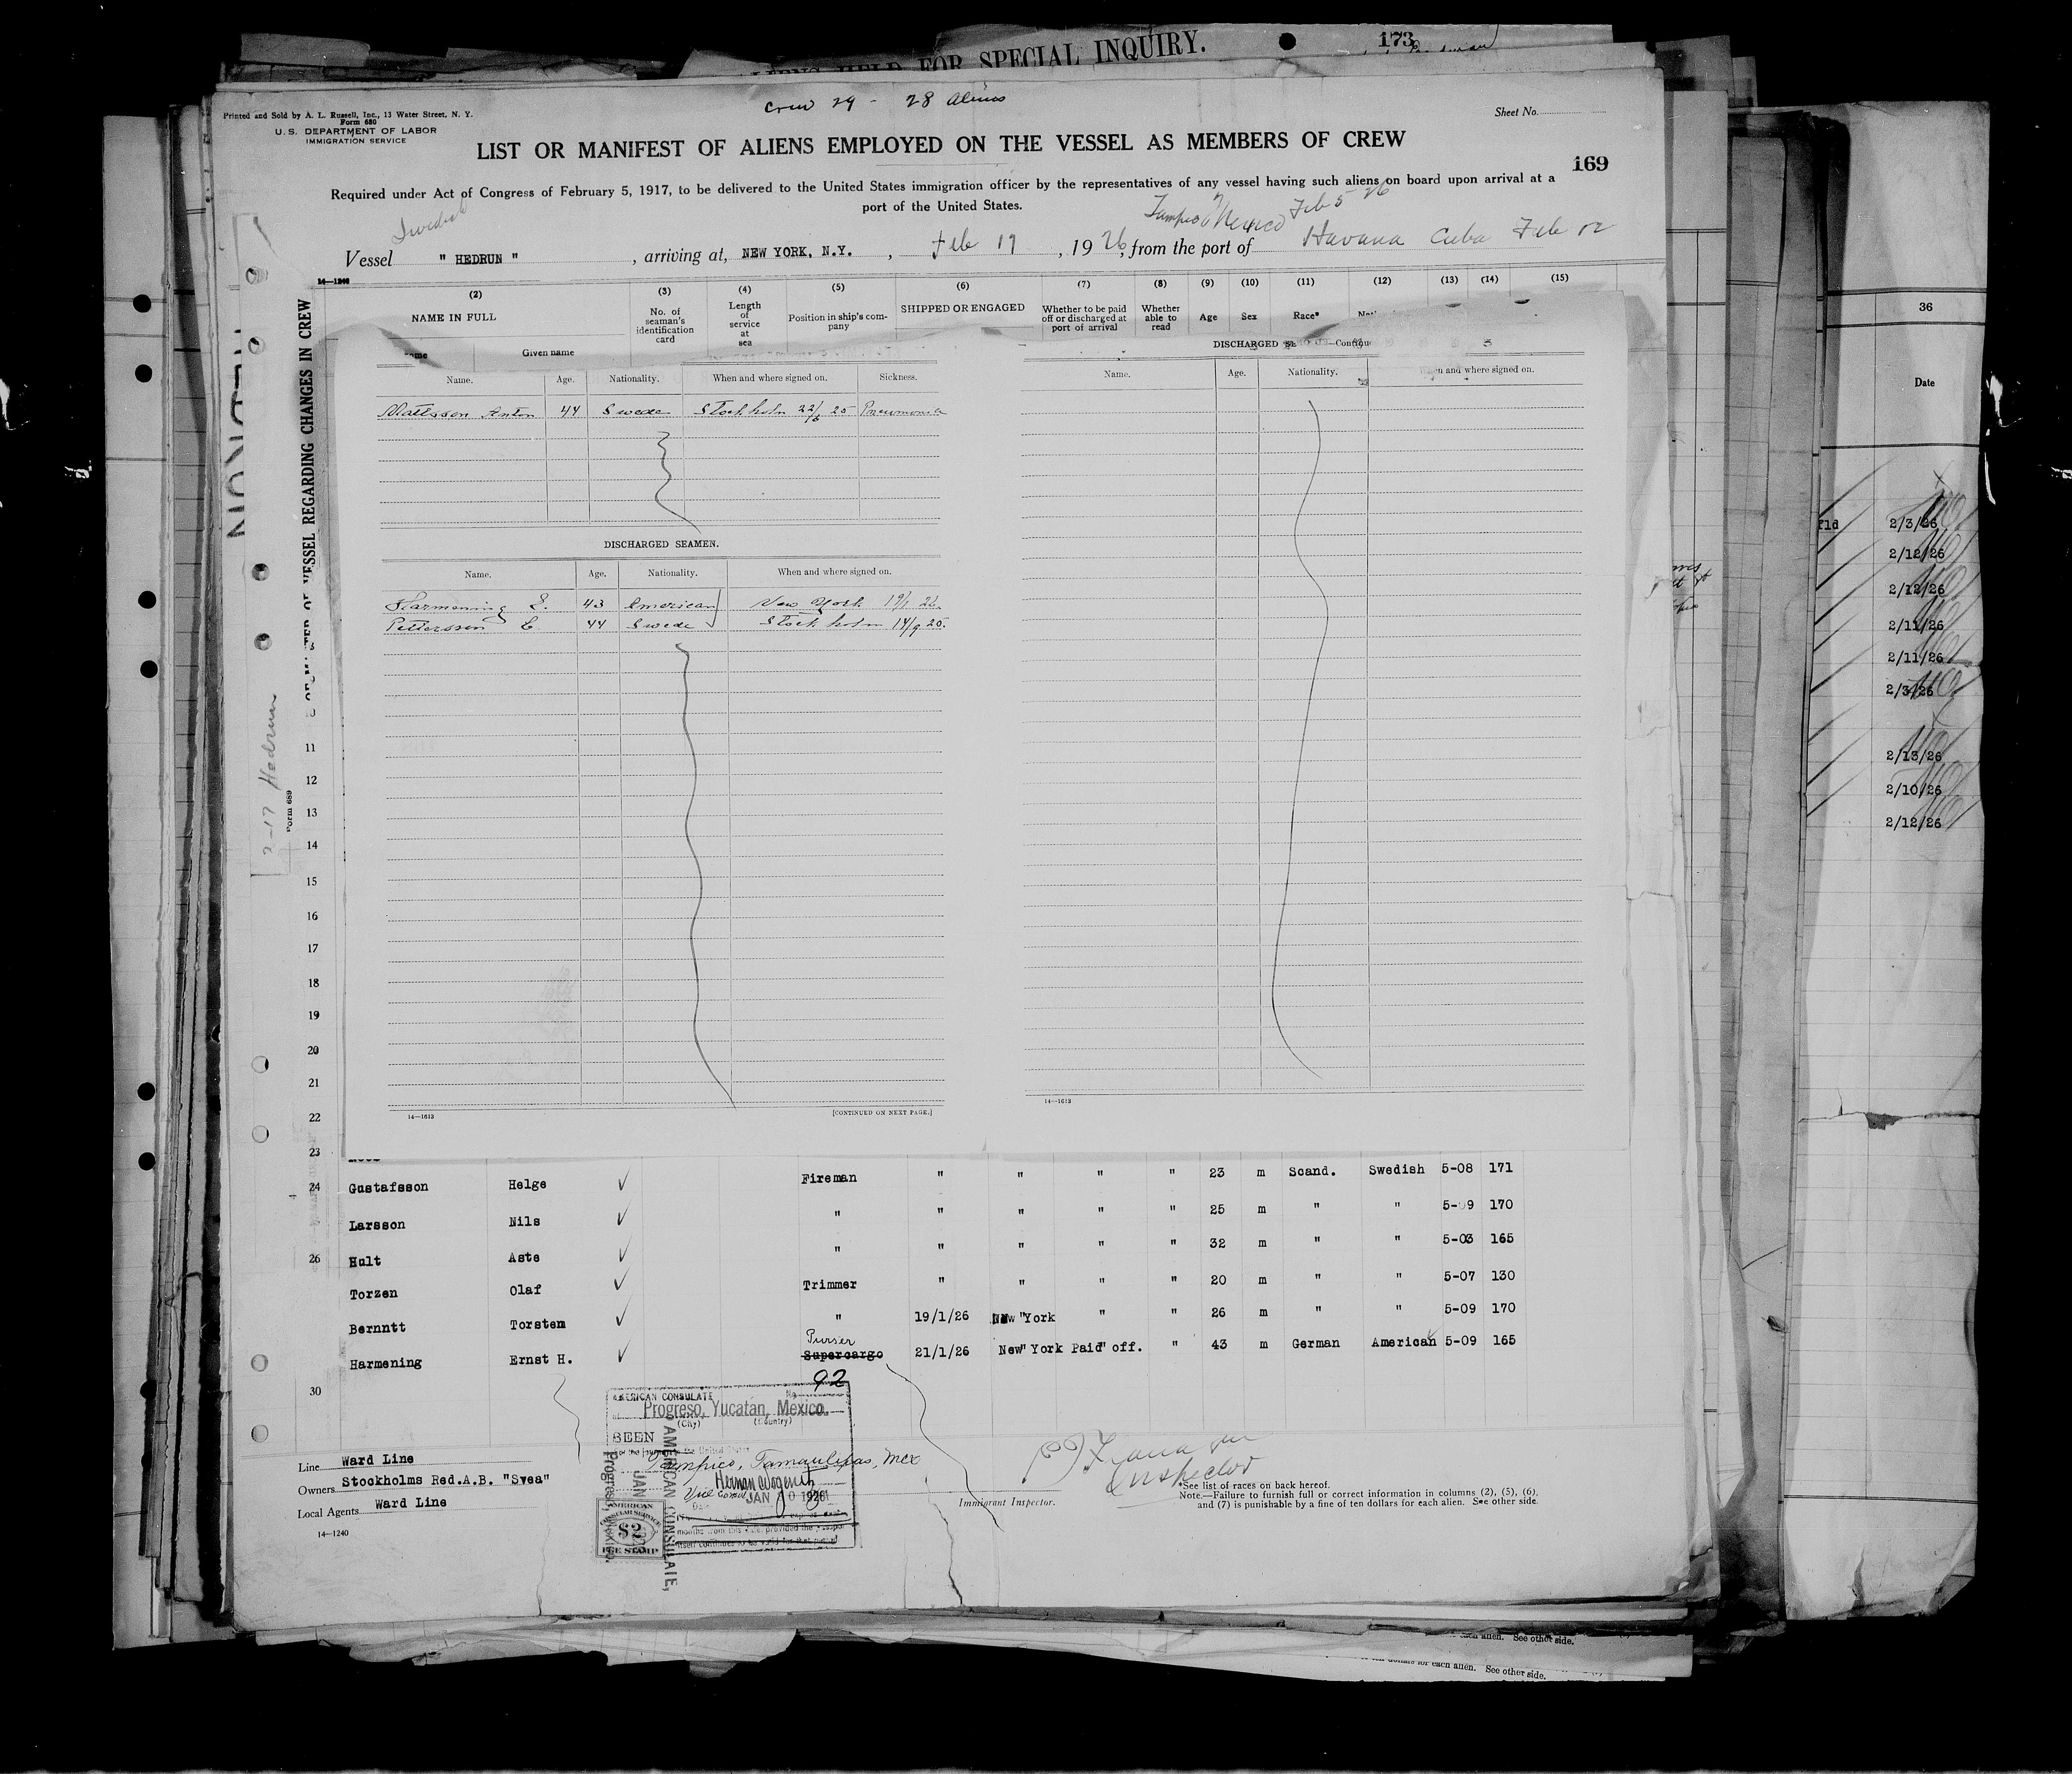 FOR SPECIAL INQUIRY.
173
Crew 29 - 28 Aliens
Printed and Sold by A. L. Russell, Inc., 13 Water Street, N. Y.
Form 680
U. S. DEPARTMENT OF LABOR
IMMIGRATION SERVICE
Sheet No.
LIST OR MANIFEST OF ALIENS EMPLOYED ON THE VESSEL AS MEMBERS OF CREW
169
Required under Act of Congress of February 5, 1917, to be delivered to the United States immigration officer by the representatives of any vessel having such aliens on board upon arrival at a
port of the United States.
Swedish
Tampico Mexico Feb 5-26
Vessel " HEDRUN " , arriving at, NEW YORK, N.Y. , Feb 17 , 1926, from the port of Havana Cuba Feb 12
14—1240
(2) (3) (4) (5) (6) (7) (8) (9) (10) (11) (12) (13) (14) (15)
NAME IN FULL No. of seaman's identification card Length of service at sea Position in ship's company SHIPPED OR ENGAGED Whether to be paid off or discharged at port of arrival Whether able to read Age Sex Race*
Given name
VESSEL REGARDING CHANGES IN CREW
Name. Age. Nationality. When and where signed on. Sickness.
Mattsson Anton 44 Swede Stockholm 22/6 25 Pneumonia
DISCHARGED SEAMEN.
Name. Age. Nationality. When and where signed on.
Harmening E. 43 American New York 19/1 26.
Pettersson C 44 Swede Stockholm 14/9 25.
14—1613 [CONTINUED ON NEXT PAGE.]
DISCHARGED
Name. Age. Nationality. and where signed on.
14—1613
2-17 Hedrun
Form 689
11
12
13
14
15
16
17
18
19
20
21
22
23
24 Gustafsson Helge ✓ Fireman " " " " 23 m Scand. Swedish 5-08 171
Larsson Nils ✓ " " " " " 25 m " " 5-09 170
26 Hult Aste ✓ " " " " " 32 m " " 5-03 165
Torzen Olaf ✓ Trimmer " " " " 20 m " " 5-07 130
Bernntt Torsten ✓ " 19/1/26 New York " " 26 m " " 5-09 170
Purser
Harmening Ernst H. ✓ Supercargo 21/1/26 New York Paid off. " 43 m German American 5-09 165
30
92
AMERICAN CONSULATE No
Progreso, Yucatán, Mexico.
(City) (Country)
SEEN
Tampico, Tamaulipas, Mex
Vice Consul
JAN 20 1926
AMERICAN CONSULATE,
Progreso, Mexico.
AMERICAN
CONSULAR SERVICE
$2
FEE STAMP
months from this date, provided the passport
itself continues to be valid for that period
Line Ward Line
Owners Stockholms Red.A.B. "Svea"
Local Agents Ward Line
14—1240
Inspector
Immigrant Inspector.
*See list of races on back hereof.
Note.—Failure to furnish full or correct information in columns (2), (5), (6),
and (7) is punishable by a fine of ten dollars for each alien. See other side.
each alien. See other side.
dollars for each alien. See other side.
36
Date
2/3/26
2/12/26
2/12/26
2/11/26
2/11/26
2/3/26
2/13/26
2/10/26
2/12/26